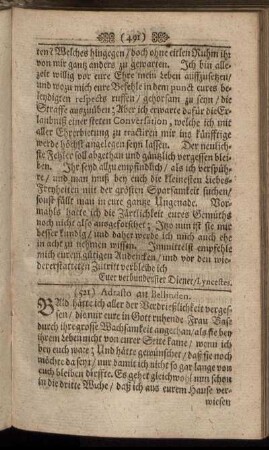 (491)
ten? Welches hingegen / doch ohne eitlen Ruhm ihr
von mir gantz anders zu gewarten. Ich bin alle-
zeit willig vor eure Ehre mein Leben auffzusetzen/
und wozu mich eure Befehle in dem punct eures be-
leydigten respects ruffen / gehorsam zu seyn / die
Straffe auszuüben; Aber ich erwarte dafür die Er-
laubniß einer steten Conversation, welche ich mit
aller Ehrerbietung zu tractiren mir ins künfftige
werde höchst angelegen seyn lassen. Der neulich-
ste Fehler soll abgethan und gäntzlich vergessen blei-
ben. Ihr seyd allzuempfindlich / als ich verspüh-
re / und man muß bey euch die kleinesten Liebes-
Freyheiten mit der grösten Sparsamkeit suchen/
sonst fällt man in eure gantze Ungenade. Vor-
mahls hatte ich die Zärtlichkeit eures Gemüths
noch nicht also ausgeforschet; Itzo nun ist sie mir
besser kundig / und daher werde ich mich auch ehe
in acht zu nehmen wissen. Immittelst empfehle
mich eurem gütigen Andencken / und vor den wie-
dererstatteten Zutritt verbleibe ich
Euer verbundenster Diener / Lycestes.
(521) Adrasto an Bellinden.
Bald hätte ich aller der Verdrießlichkeit verges-
sen / die mir eure in Gott ruhende Frau Base
durch ihre grosse Wachsamkeit angethan / als sie bey
ihrem Leben nicht von eurer Seite kame / wenn ich
bey euch ware; Und hätte gewünschet / daß sie noch
möchte da seyn / nur damit ich nicht so gar lange von
euch bleiben dürffte. Es gehet gleichwohl nun schon
in die dritte Woche / daß ich aus eurem Hause ver-
wiesen